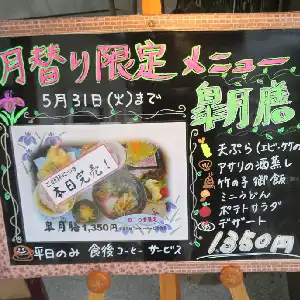 月替り限定メニュー
5月31日(火)まで
皐月膳
天ぷら(エビ・ケリの
アサリの酒蒸し
竹の子御飯
ミニうどん
ポテトサラダ
デザート
1350円
本日完売!
皐月膳 1,350円
平日のみ 食後コーヒーサービス